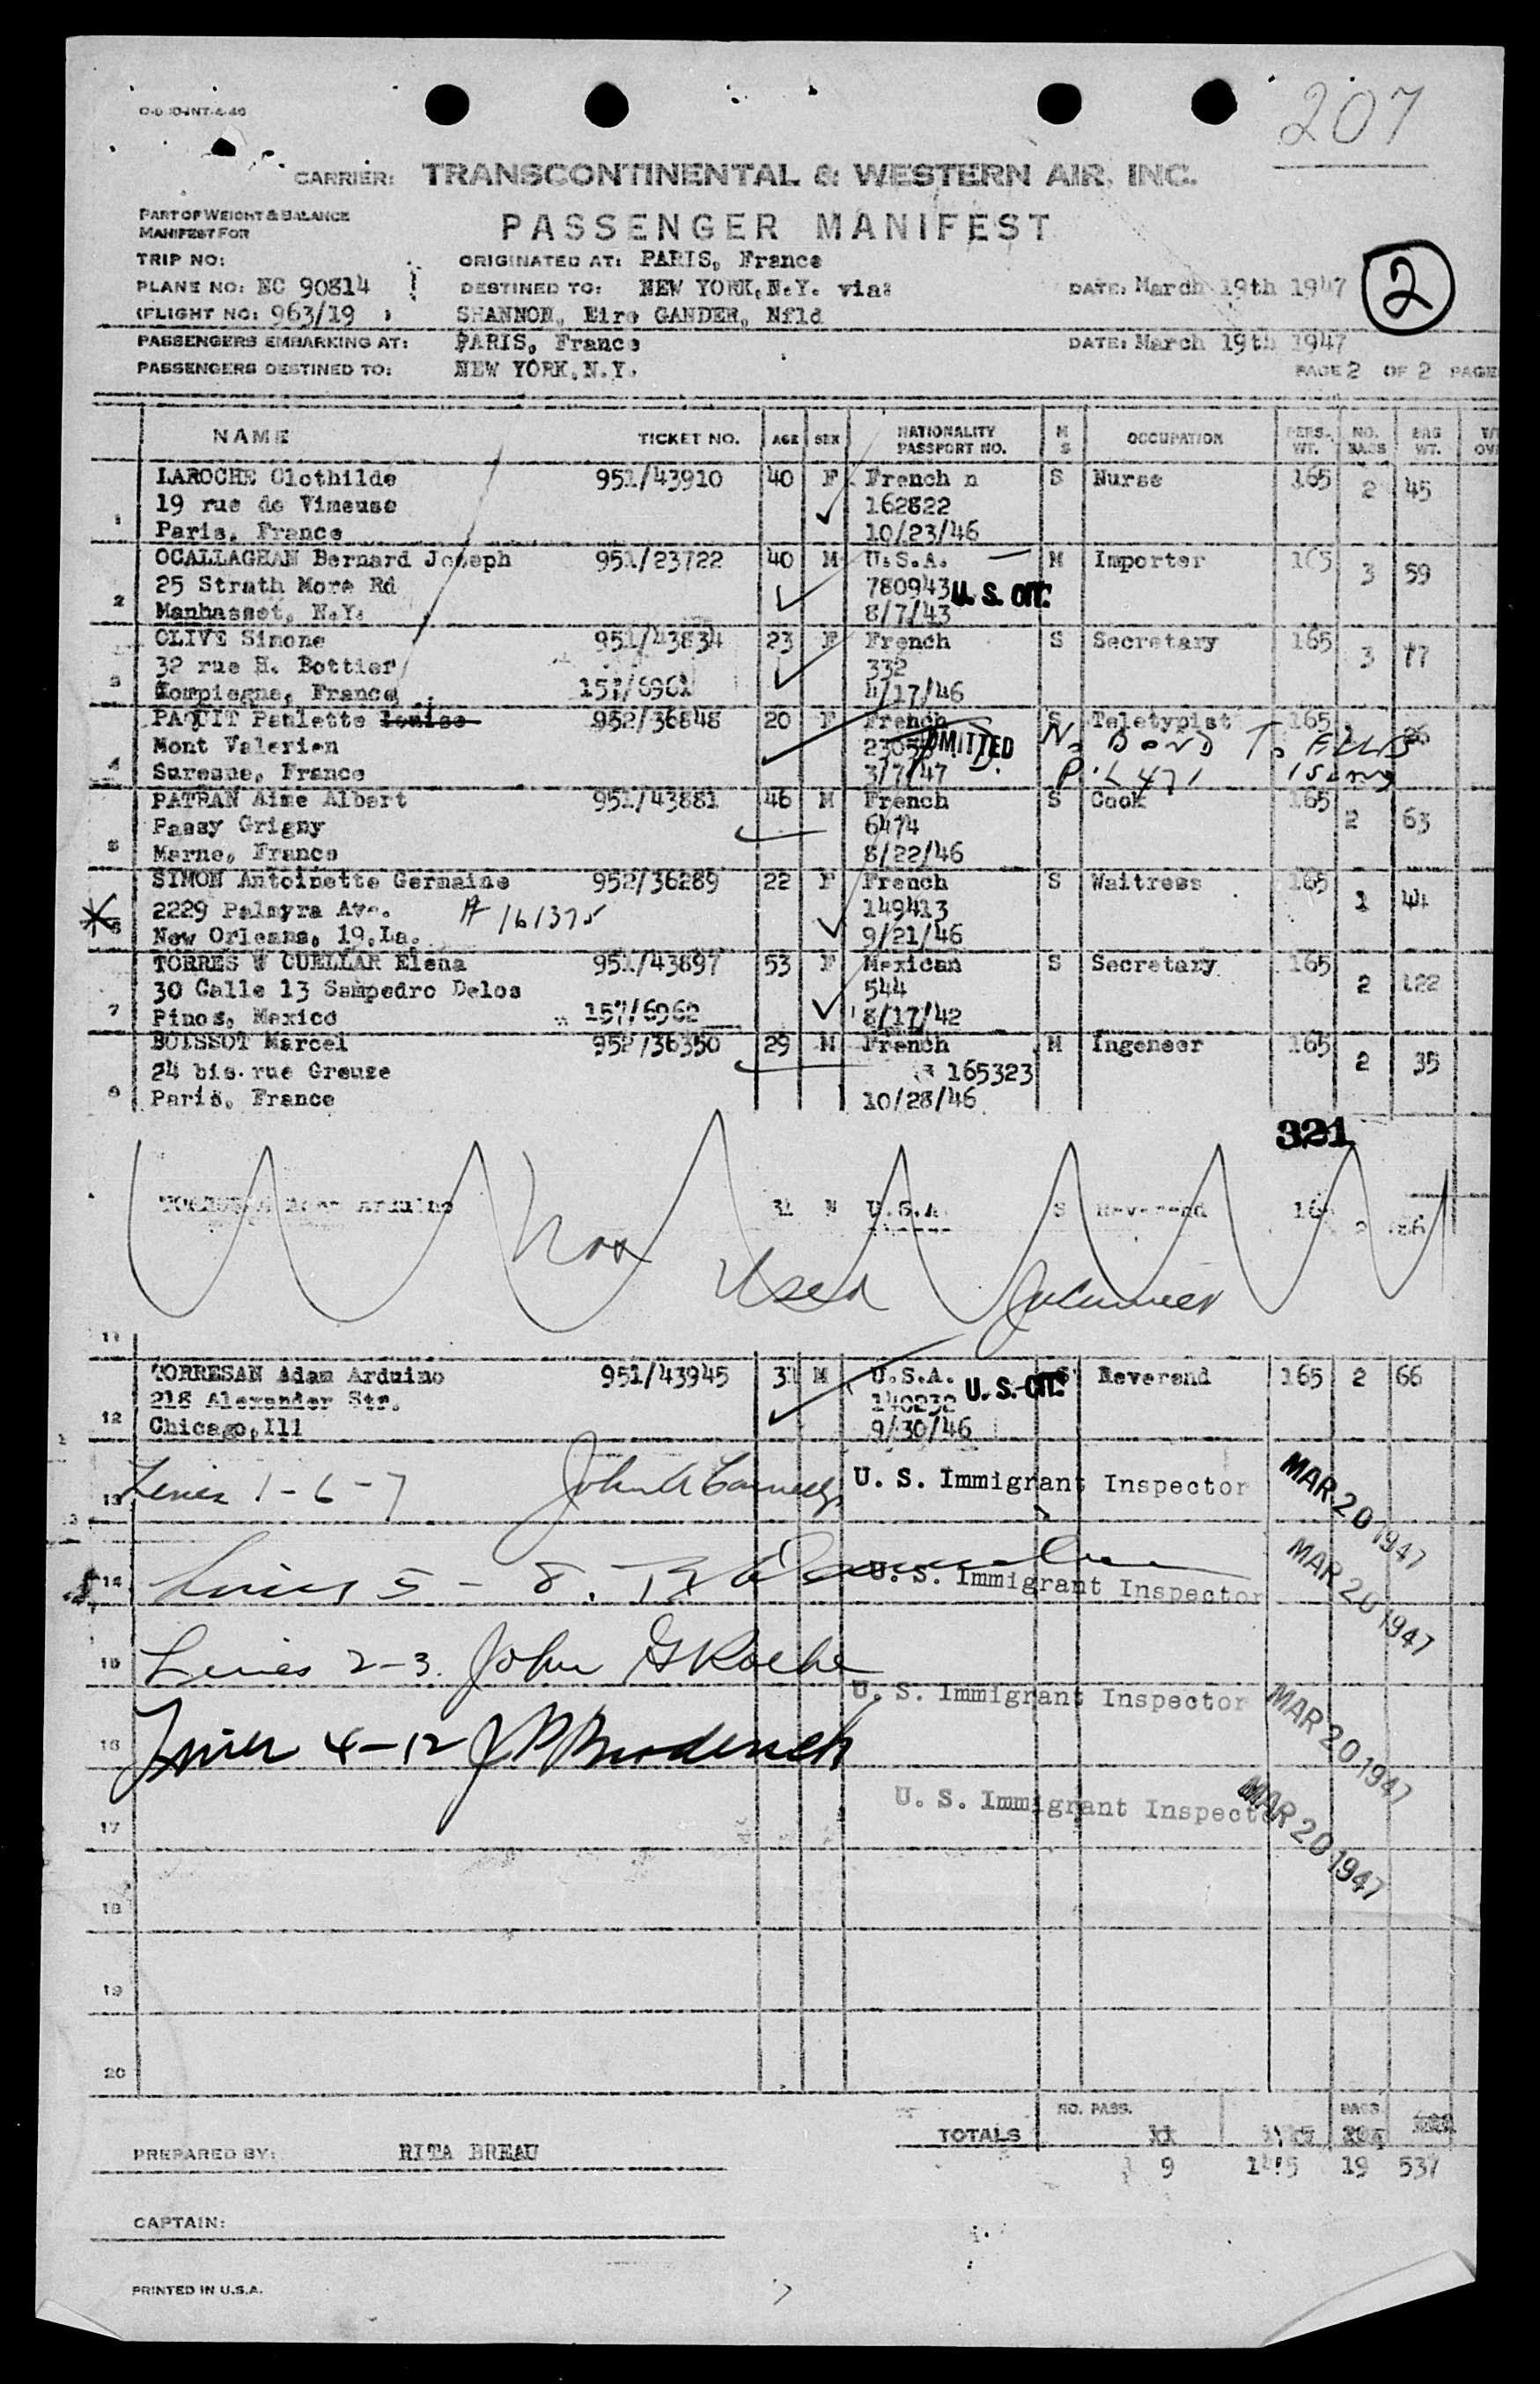 207
CARRIER: TRANSCONTINENTAL & WESTERN AIR, INC.
PART OF WEIGHT & BALANCE
MANIFEST FOR
PASSENGER MANIFEST
TRIP NO:
ORIGINATED AT: PARIS, France
PLANE NO: NC 90814
DESTINED TO: NEW YORK, N.Y. via:
DATE: March 19th 1947
2
(FLIGHT NO: 963/19 )
SHANNON, Eire GANDER, Nfld
PASSENGERS EMBARKING AT: PARIS, France DATE: March 19th 1947
PASSENGERS DESTINED TO: NEW YORK, N.Y. PAGE 2 OF 2 PAGE
NAME TICKET NO. AGE SEX NATIONALITY PASSPORT NO. M S OCCUPATION PERS. WT. NO. BAGS BAG WT.
LAROCHE Clothilde 951/43910 40 F French n S Nurse 165 2 45
19 rue de Vimeuse 162822
1 Paris, France 10/23/46
OCALLAGHAN Bernard Joseph 951/23722 40 M U.S.A. M Importer 165 3 59
25 Strath More Rd 780943 U. S. CIT.
2 Manhasset, N.Y. 8/7/43
OLIVE Simone 951/43834 23 F French S Secretary 165 3 77
32 rue H. Bottier 332
3 Compiegne, France 157/6961 4/17/46
PATUIT Paulette Louise 952/36848 20 F French S Teletypist 165 26
Mont Valerien ADMITTED No Bond To Ellis
4 Suresne, France 3/7/47 P.L 471 Island
PATRAN Aime Albert 951/43881 46 M French S Cook 165 2 63
Passy Grigny 6474
5 Marne, France 8/22/46
SIMON Antoinette Germaine 952/36289 22 F French S Waitress 165 1 44
2229 Palmyra Ave. A 161375 149413
6 New Orleans, 19, La. 9/21/46
TORRES W CUELLAR Elena 951/43897 53 F Mexican S Secretary 165 2 122
30 Calle 13 Sampedro Delos 544
7 Pinos, Mexico 157/6962 8/17/42
BOISSOT Marcel 952/36350 29 M French M Ingeneer 165 2 35
24 bis. rue Greuze 165323
8 Paris, France 10/28/46
321
Arduino 31 M U.S.A. S Reverend
Not Used
11
TORRESAN Adam Arduino 951/43945 31 M U.S.A. S Reverend 165 2 66
218 Alexander Str. 140232 U. S. CIT.
12 Chicago, Ill 9/30/46
13 Lines 1-6-7 U. S. Immigrant Inspector MAR 20 1947
14 Lines 5 - 8. U. S. Immigrant Inspector MAR 20 1947
15 Lines 2-3. John U. S. Immigrant Inspector MAR 20 1947
16 Lines 4-12 J P Broderick
U. S. Immigrant Inspector MAR 20 1947
17
18
19
20
NO. PASS.
TOTALS 11
PREPARED BY: RITA BREAU
9 19 537
CAPTAIN:
PRINTED IN U.S.A.